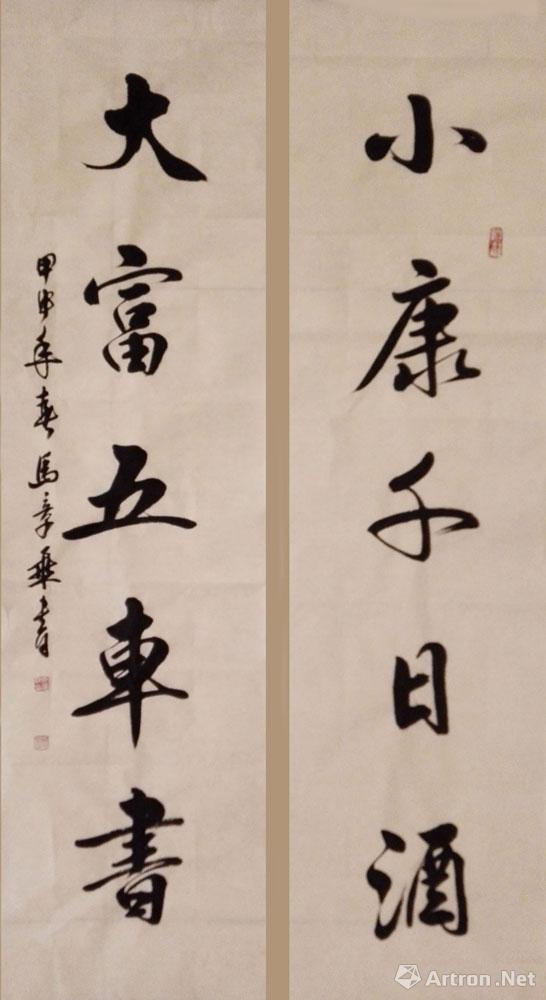 小康千日酒
大富五車書
甲申年春马章乘书
Artron.Net